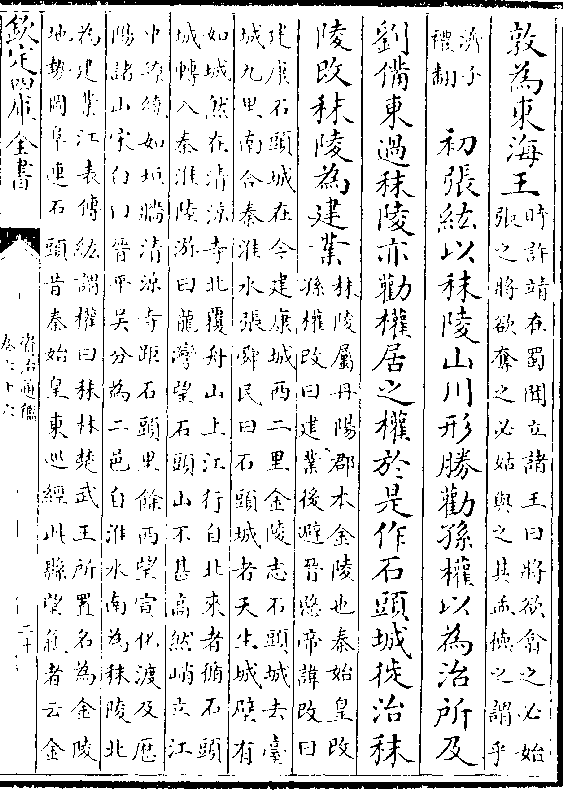 敦為東海王
時許靖在蜀聞立諸王曰將欲翕之必始
張之將欲奪之必姑與之其孟德之謂乎
濟子
禮翻
初張紘以秣陵山川形勝勸孫權以為治所及
劉備東過秣陵亦勸權居之權於是作石頭城徙治秣
陵改秣陵為建業
秣陵屬丹陽郡本金陵也秦始皇改
孫權改曰建業後避晉愍帝諱改曰
建康石頭城在今建康城西二里金陵志石頭城去臺
城九里南合秦淮水張舜民曰石頭城者天生城壁有
如城然在清涼寺北覆舟山上江行自北來者循石頭
城轉入秦淮陸游曰龍灣望石頭山不甚高然峭立江
中繚繞如垣牆清源寺距石頭里餘西望宣化渡及歷
陽諸山宋白曰晉平吳分為二邑自淮水南為秣陵北
為建業江表傳紘謂權曰秣林楚武王所置名為金陵
地勢岡阜連石頭昔秦始皇東巡經此縣望氣者云金
欽定四庫全書
資治通鑑
卷六十六
二十